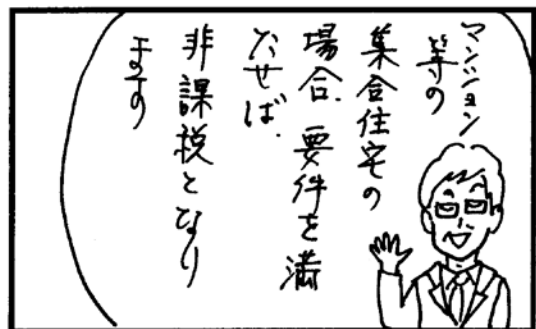 マンション
等の
集合住宅の
場合、要件を満
たせば、
非課税となり
ます